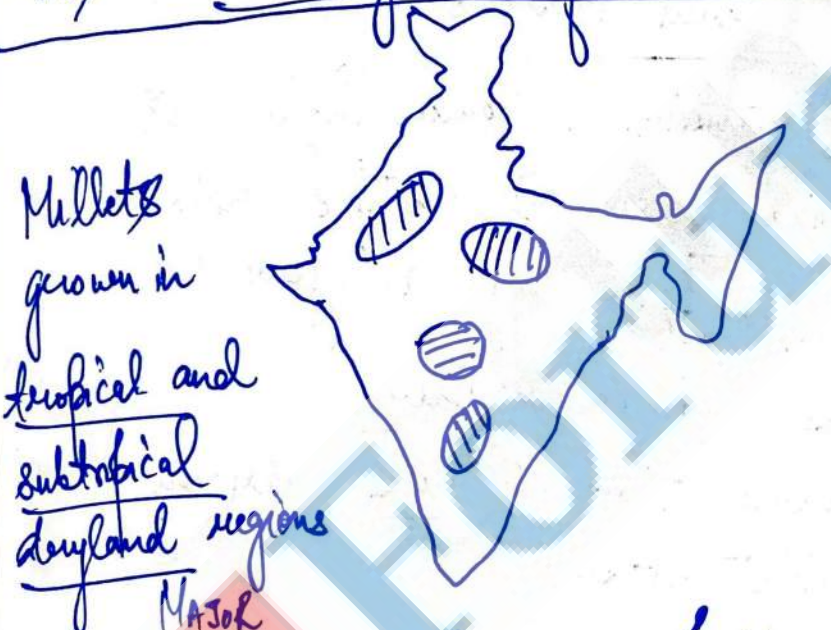 Millets
grown in
tropical and
subtropical
dryland regions
MAJOR
Forum